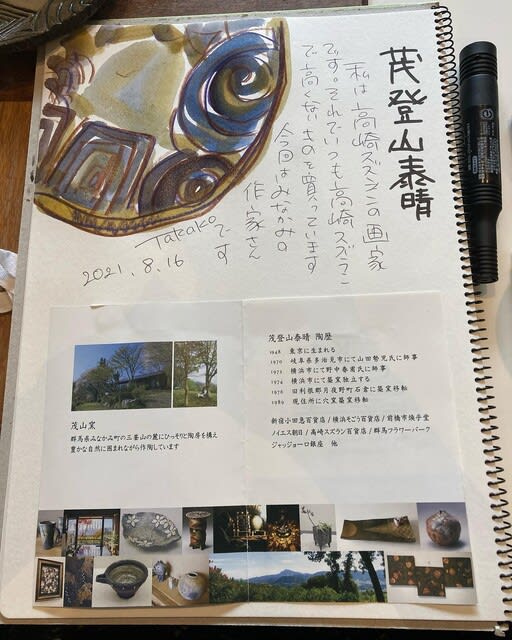 茂登山泰晴
私は高崎スズランの画家
です。それでいつも高崎スズラン
で高くないものを買っています
今回はみなかみの
作家さん
です
Takako
2021.8.16
茂山窯
群馬県みなかみ町の三峯山の麓にひっそりと陶房を構え
豊かな自然に囲まれながら作陶しています
茂登山泰晴 陶歴
1948 東京に生まれる
1970 岐阜県多治見市にて山田勢児氏に師事
1972 横浜市にて野中春甫氏に師事
1974 横浜市にて築窯独立する
1976 旧利根郡月夜野町石倉に築窯移転
1989 現住所に穴窯築窯移転
新宿小田急百貨店/横浜そごう百貨店/前橋市煥乎堂
ノイエス朝日/高崎スズラン百貨店/群馬フラワーパーク
ジャッジョーロ銀座 他